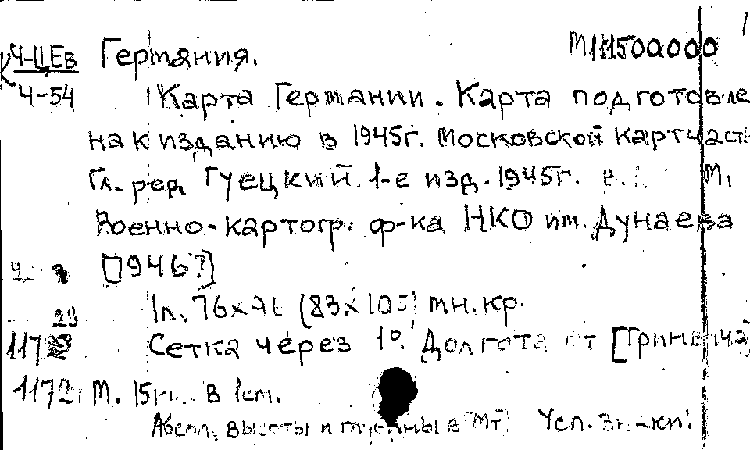 Ч-ЦЕв Германия. М 1:1500.000
Ч-54 Карта Германии. Карта подготовле
на к изданию в 1945г. Московской картчаст
Гл. ред. Гуецкий. 1-е изд. 1945г. М.,
Военно-картогр. ф-ка НКО им. Дунаева
[1946?]
1л. (83х105) мн. кр.
Сетка через 1°. Долгота от [Гринвича
1172 М. 15км. в 1см.
Абсол. высоты и глубины в Мт. Усл. знаки.